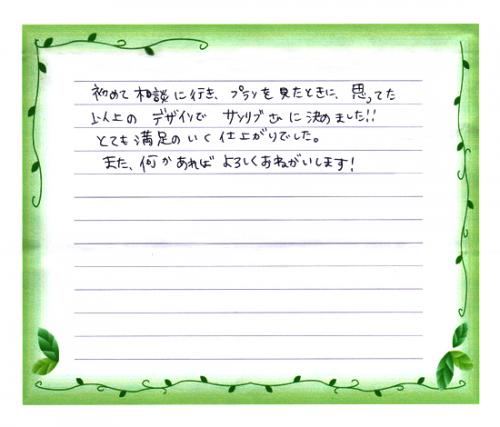 初めて相談に行き、プランを見たときに、思ってた
以上の デザインで サンリブさんに決めました!!
とても満足のいく仕上がりでした。
また、何かあれば よろしくおねがいします!